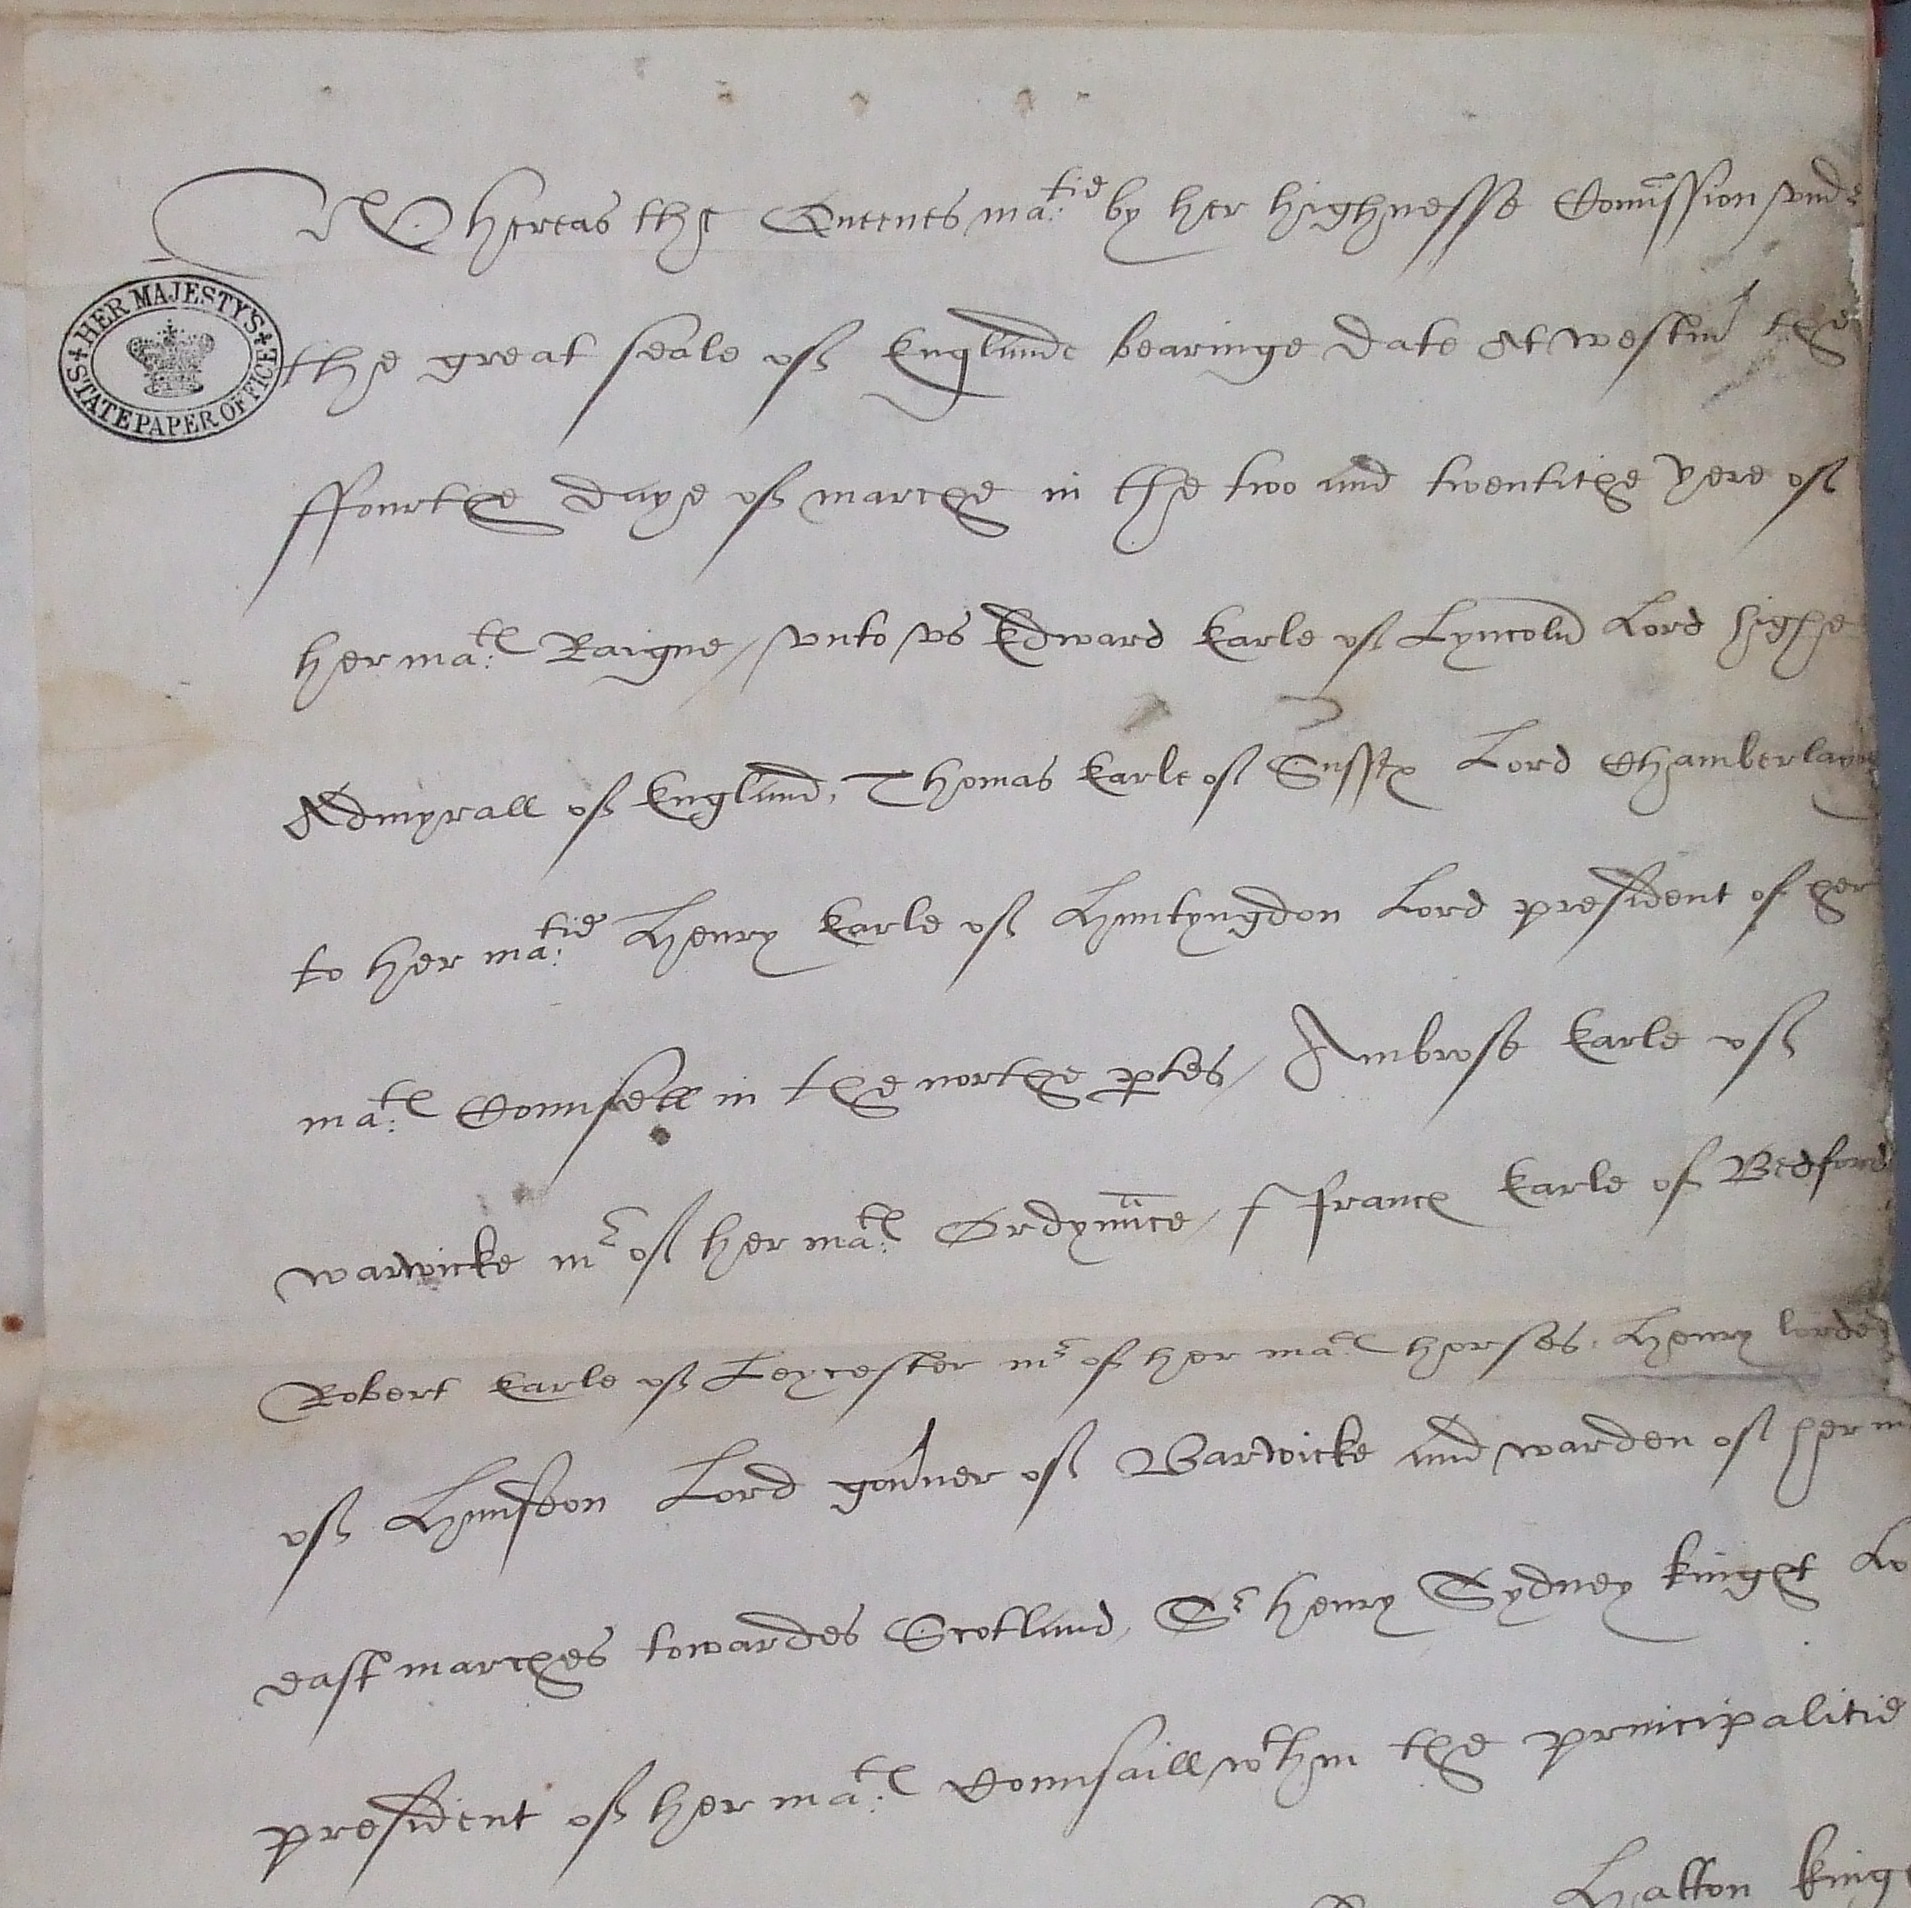 HER MAJESTY'S STATE PAPER OFFICE
Whereas the Queenes ma:tie by her highnesse Com̃ission vnder
the great seale of Englande bearinge date At westm the
ffourthe daye of marche in the two and twentithe yere of
her ma:ts Raigne / vnto vs Edward Earle of Lyncoln Lord highe
Admyrall of England, Thomas Earle of Sussex Lord Chamberlayne
to her ma:tie Henry Earle of Huntyngdon Lord president of her
ma:ts Counsell in the northe ptes / Ambrose Earle of
warwicke mr of her ma:ts Ordynn̄ce / ffrancs Earle of Bedford
Robert Earle of Leycester mr of her ma:ts horses, Henry lorde
of Hunsdon Lord gou'ner of Barwicke and warden of her ma
east marches towardes Scotland, Sr Henry Sydney knight Lo
president of her ma:ts Counsaill wthin the principalitie
Hatton knig